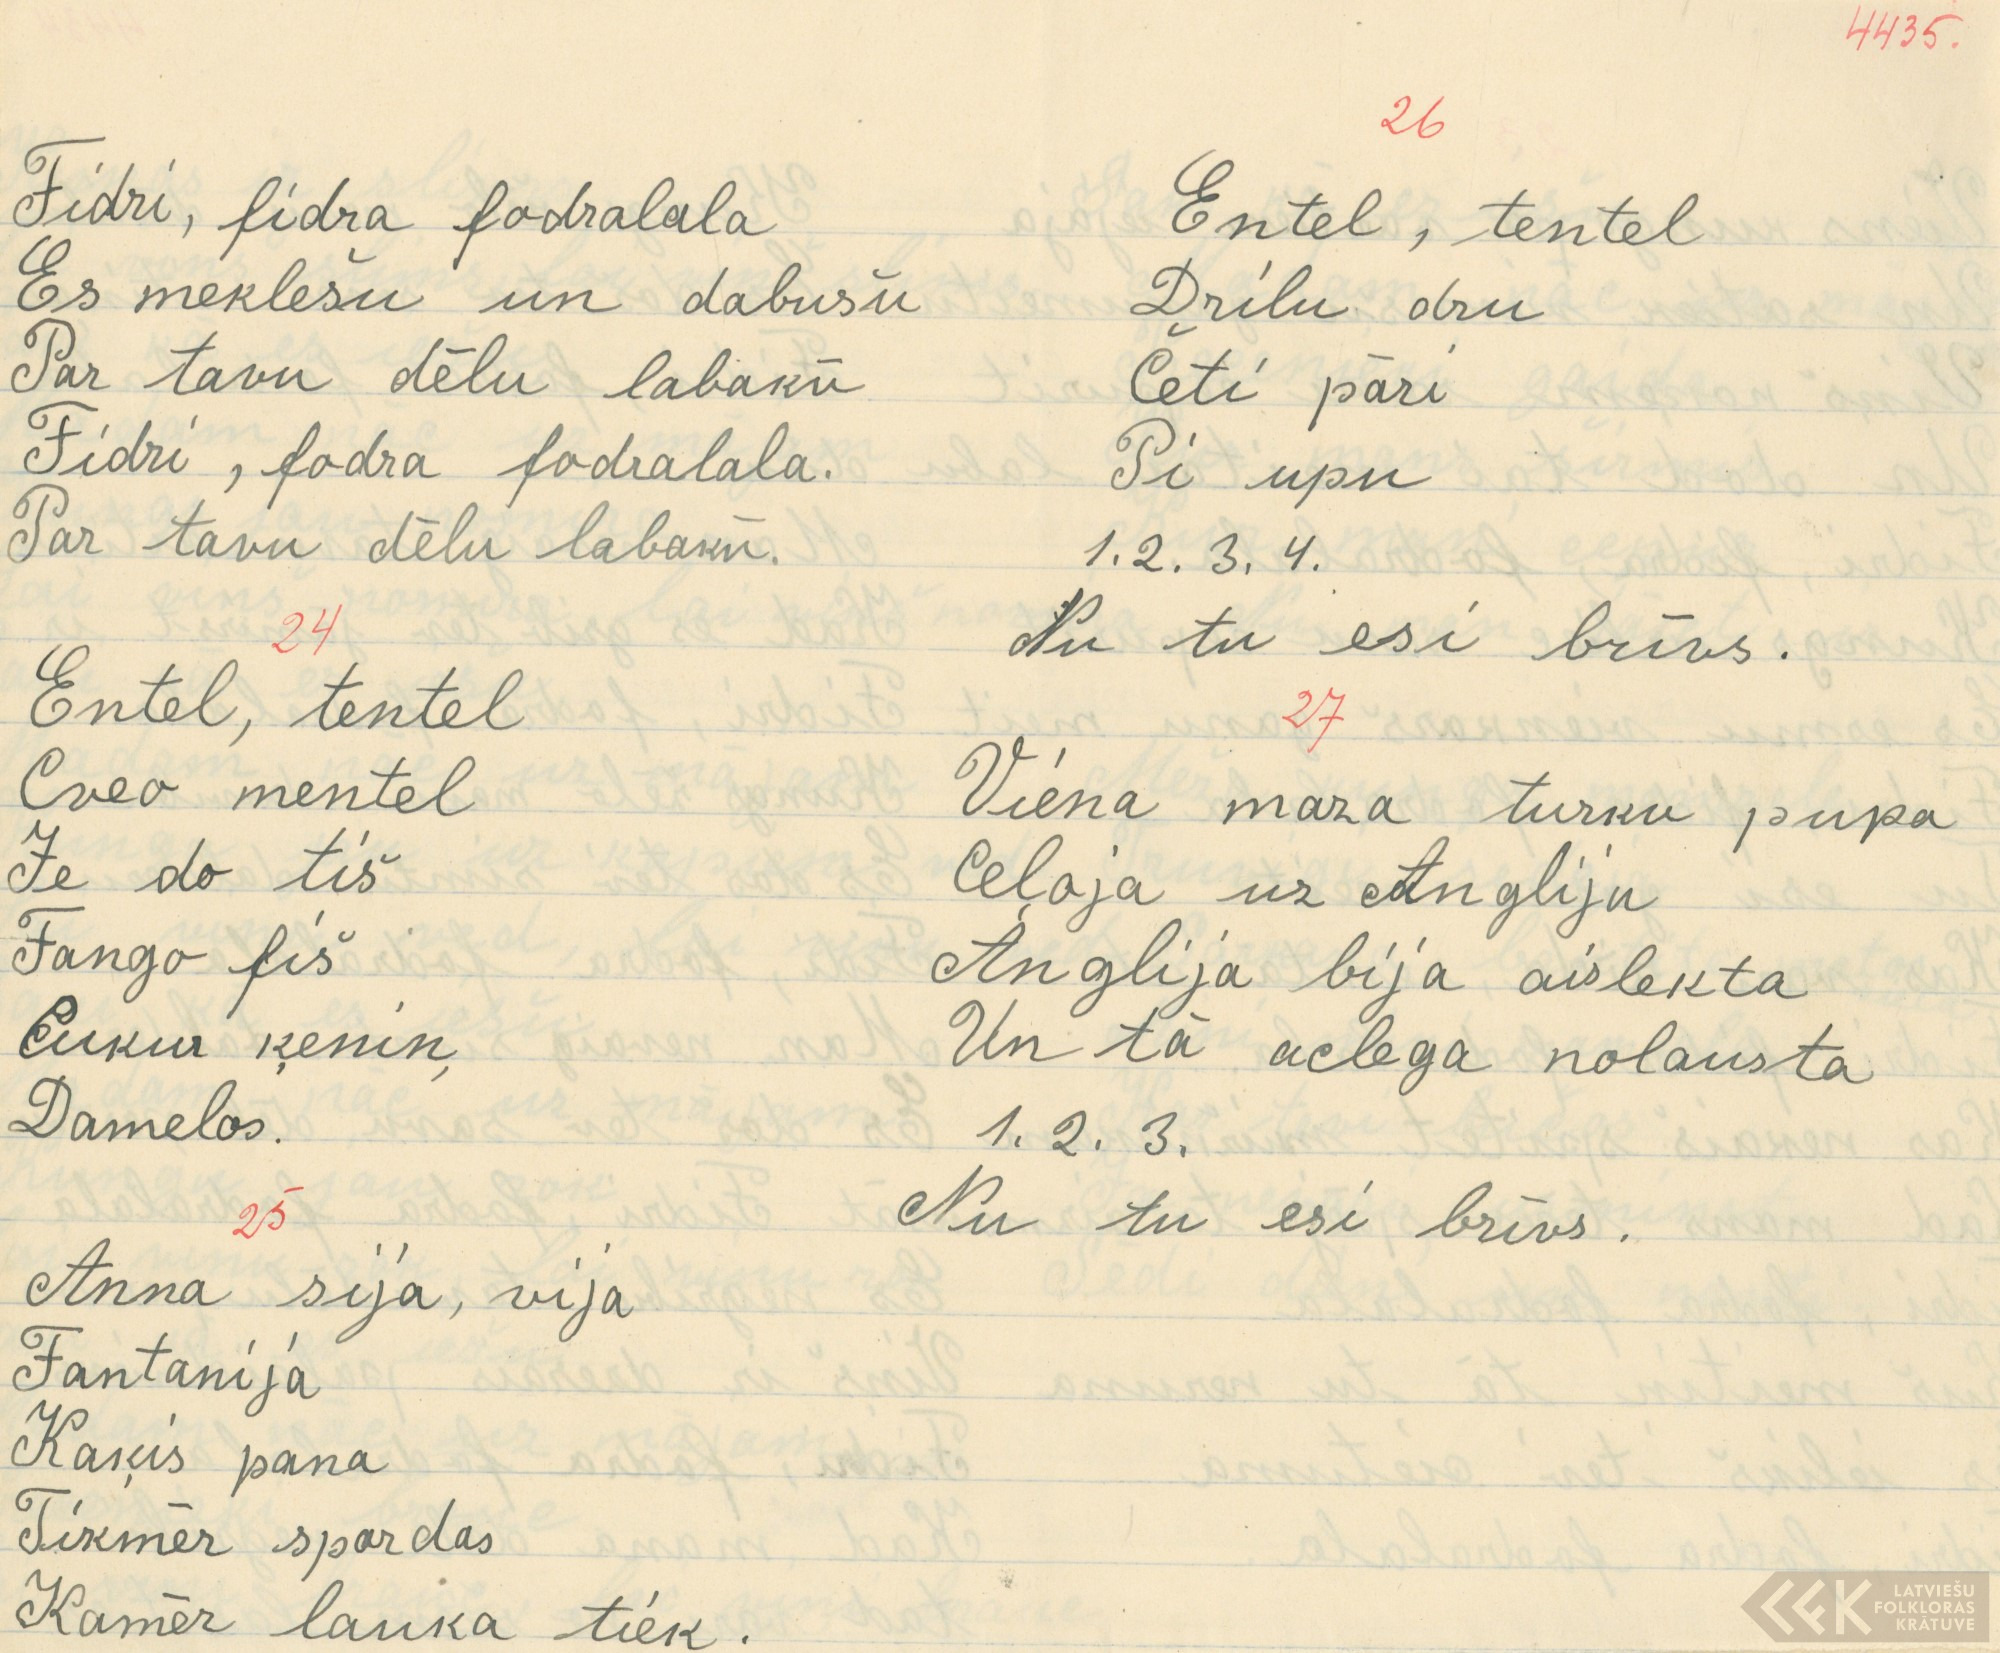 4435.
Fidri, fidra fodralala
Es meklešu un dabušu
Par tavu dēlu labakū
Fidri, fodra fodralala.
Par tavu dēlu labakū.
24
Entel, tentel
Cveo mentel
Je do tiš
Fango fiš
Cukur ķeniņ
Damelos.
25
Anna sija, vija
Fantanija
Kaķis pana
Tikmēr spardas
Kamēr lauka tiek.
26
Entel, tentel
Drilu dru
Četi pāri
Pi upu
1. 2. 3. 4.
Nu tu esi brīvs.
27
Viena maza turku pupa
Ceļoja uz Angliju
Anglija bija aislekta
Un tā aclega nolausta
1. 2. 3.
Nu tu esi brīvs.
LATVIEŠU
FOLKLORAS
KRĀTUVE